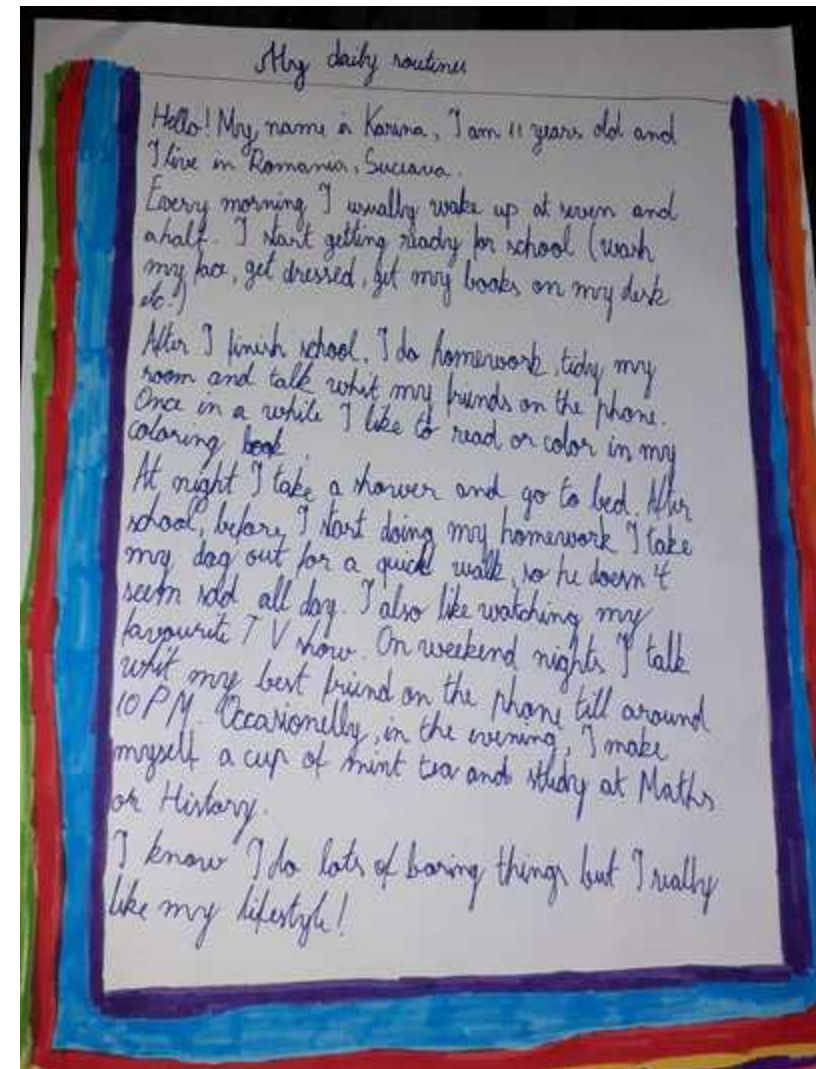 My daily routines
Hello! My name is Karina, I am 11 years old and
I live in Romania, Suceava.
Every morning I usually wake up at seven and
ahalf. I start getting ready for school (wash
my face, get dressed, get my books on my desk
etc.)
After I finish school, I do homework, tidy my
room and talk whit my friends on the phone.
Once in a while I like to read or color in my
coloring book.
At night I take a shower and go to bed. After
school, before I start doing my homework I take
my dog out for a quick walk, so he doesn't
seem sad all day. I also like watching my
favourite TV show. On weekend nights I talk
whit my best friend on the phone till around
10 PM. Occasionelly, in the evening, I make
myself a cup of mint tea and study at Maths
or History.
I know I do lots of boring things but I really
like my lifestyle!